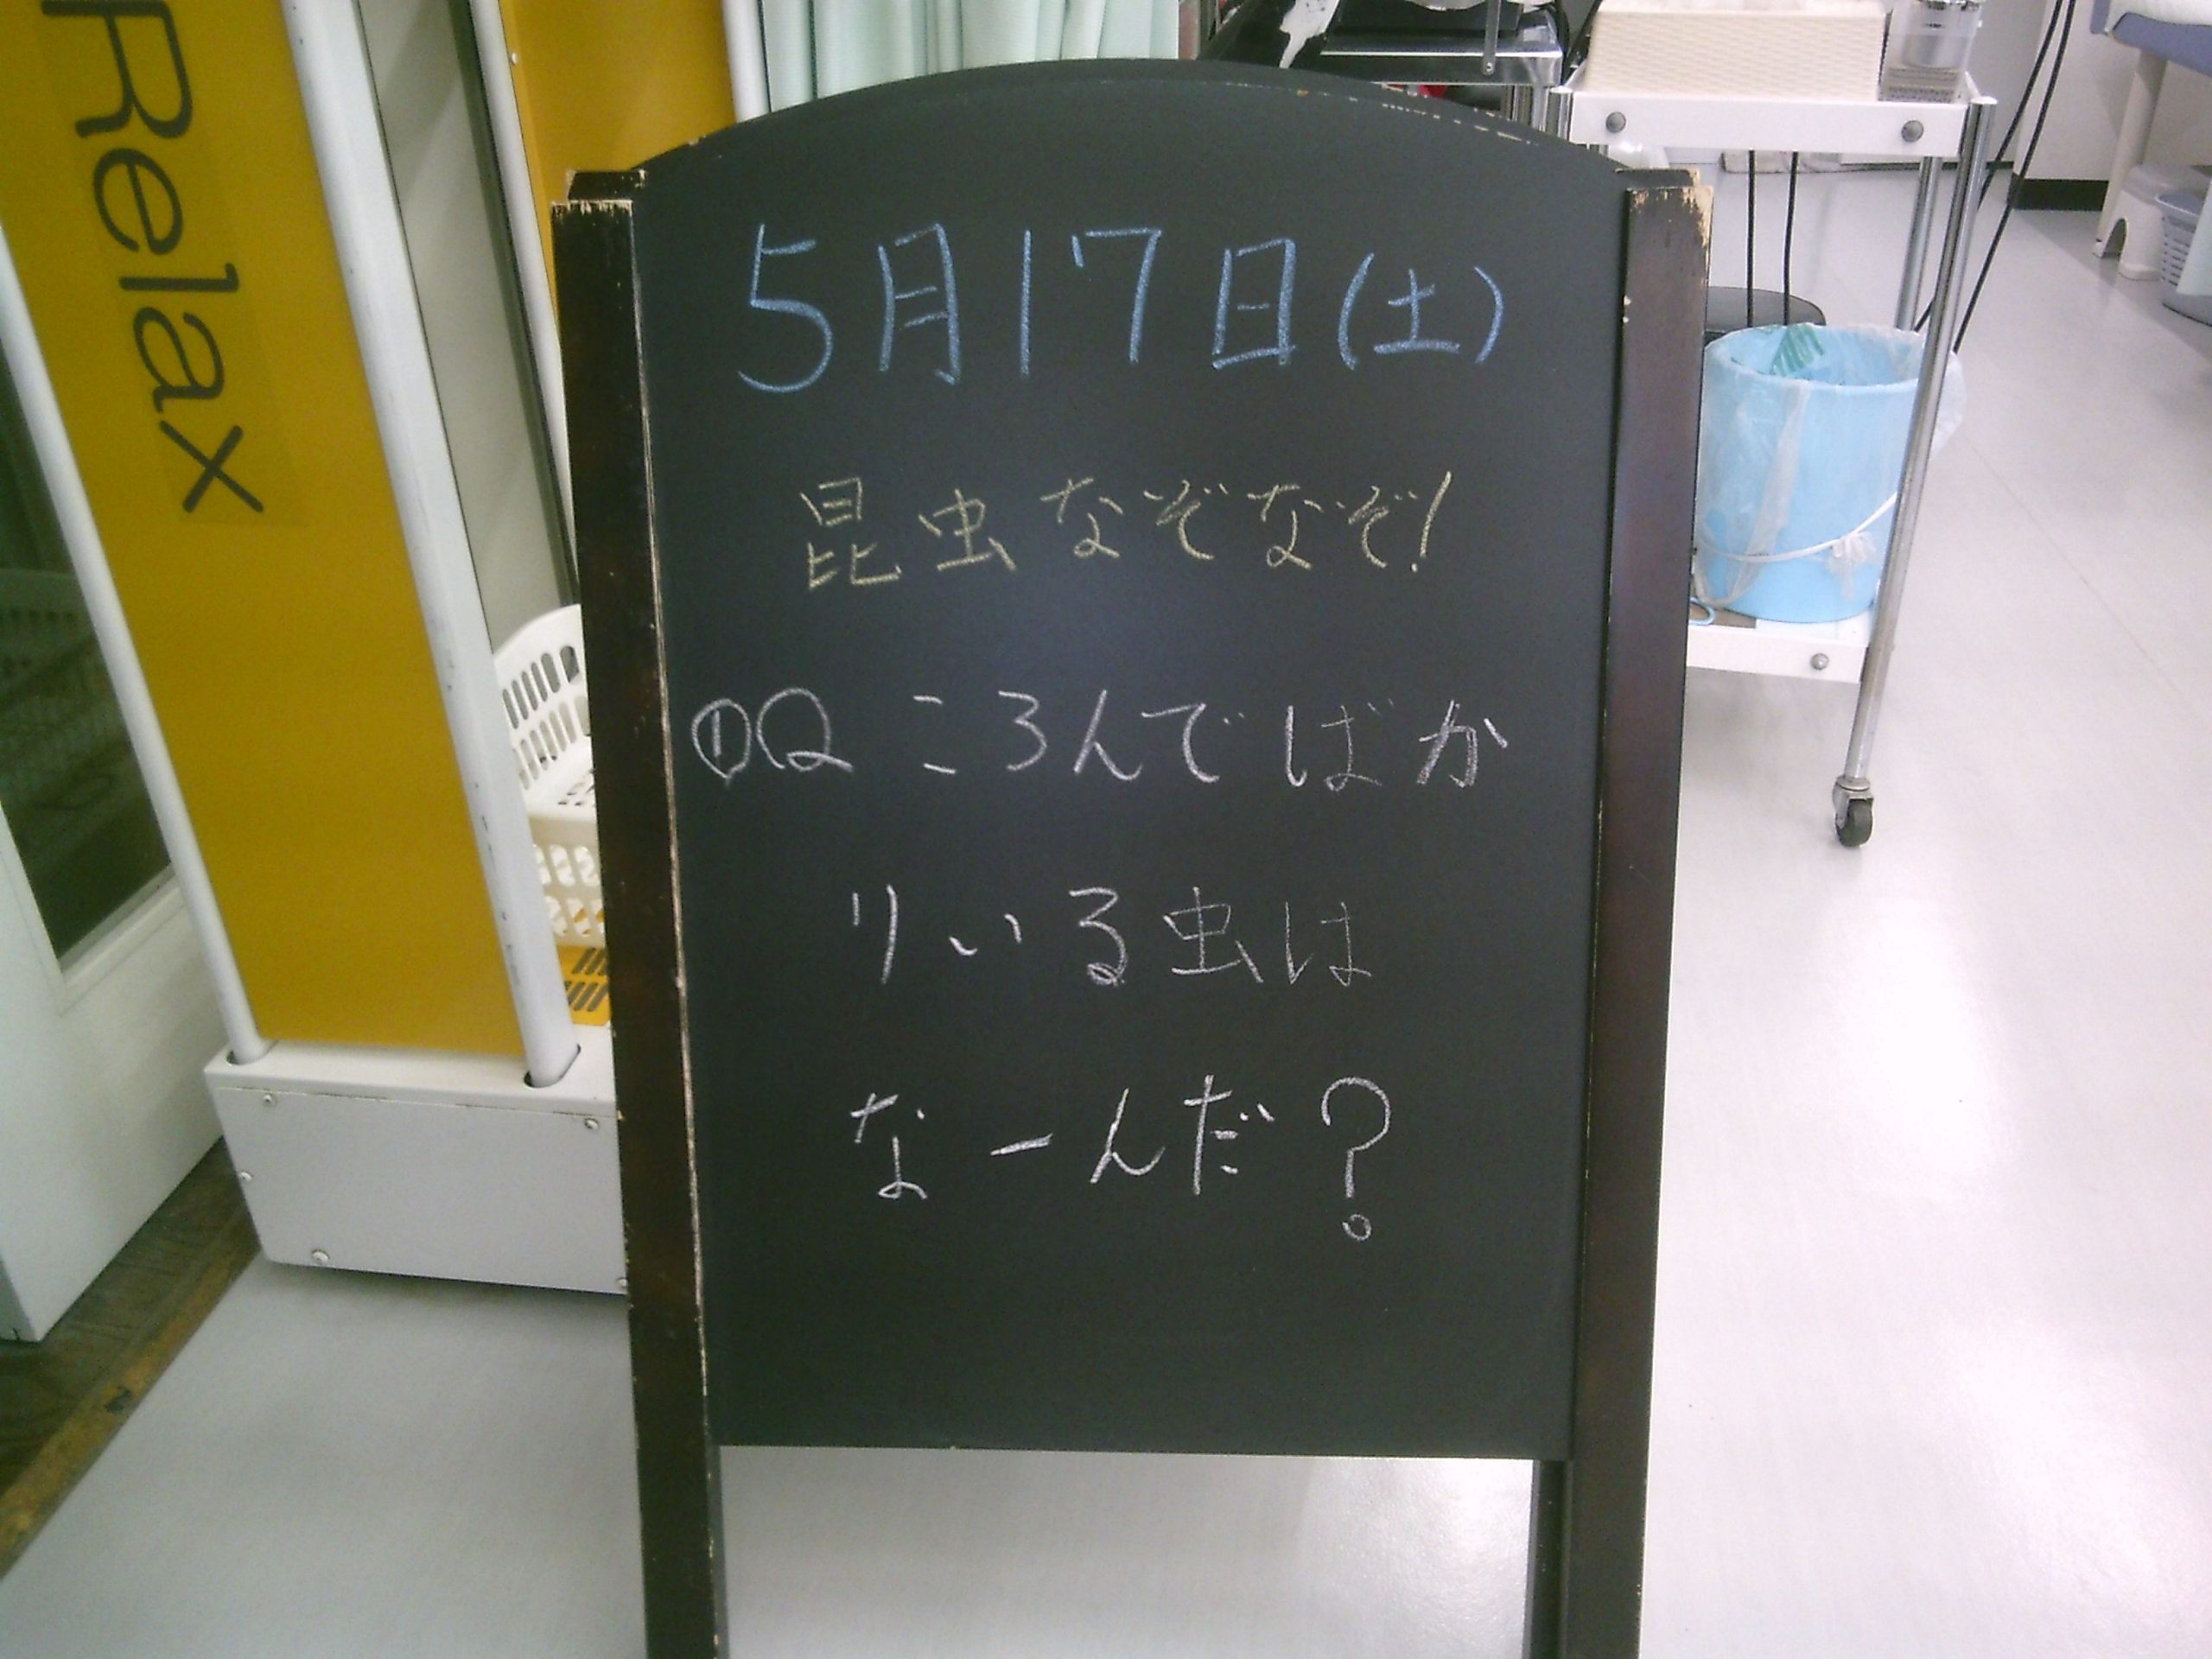 Relax
5月17日(土)
昆虫なぞなぞ!
①Q ころんでばか
りいる虫は
なーんだ?